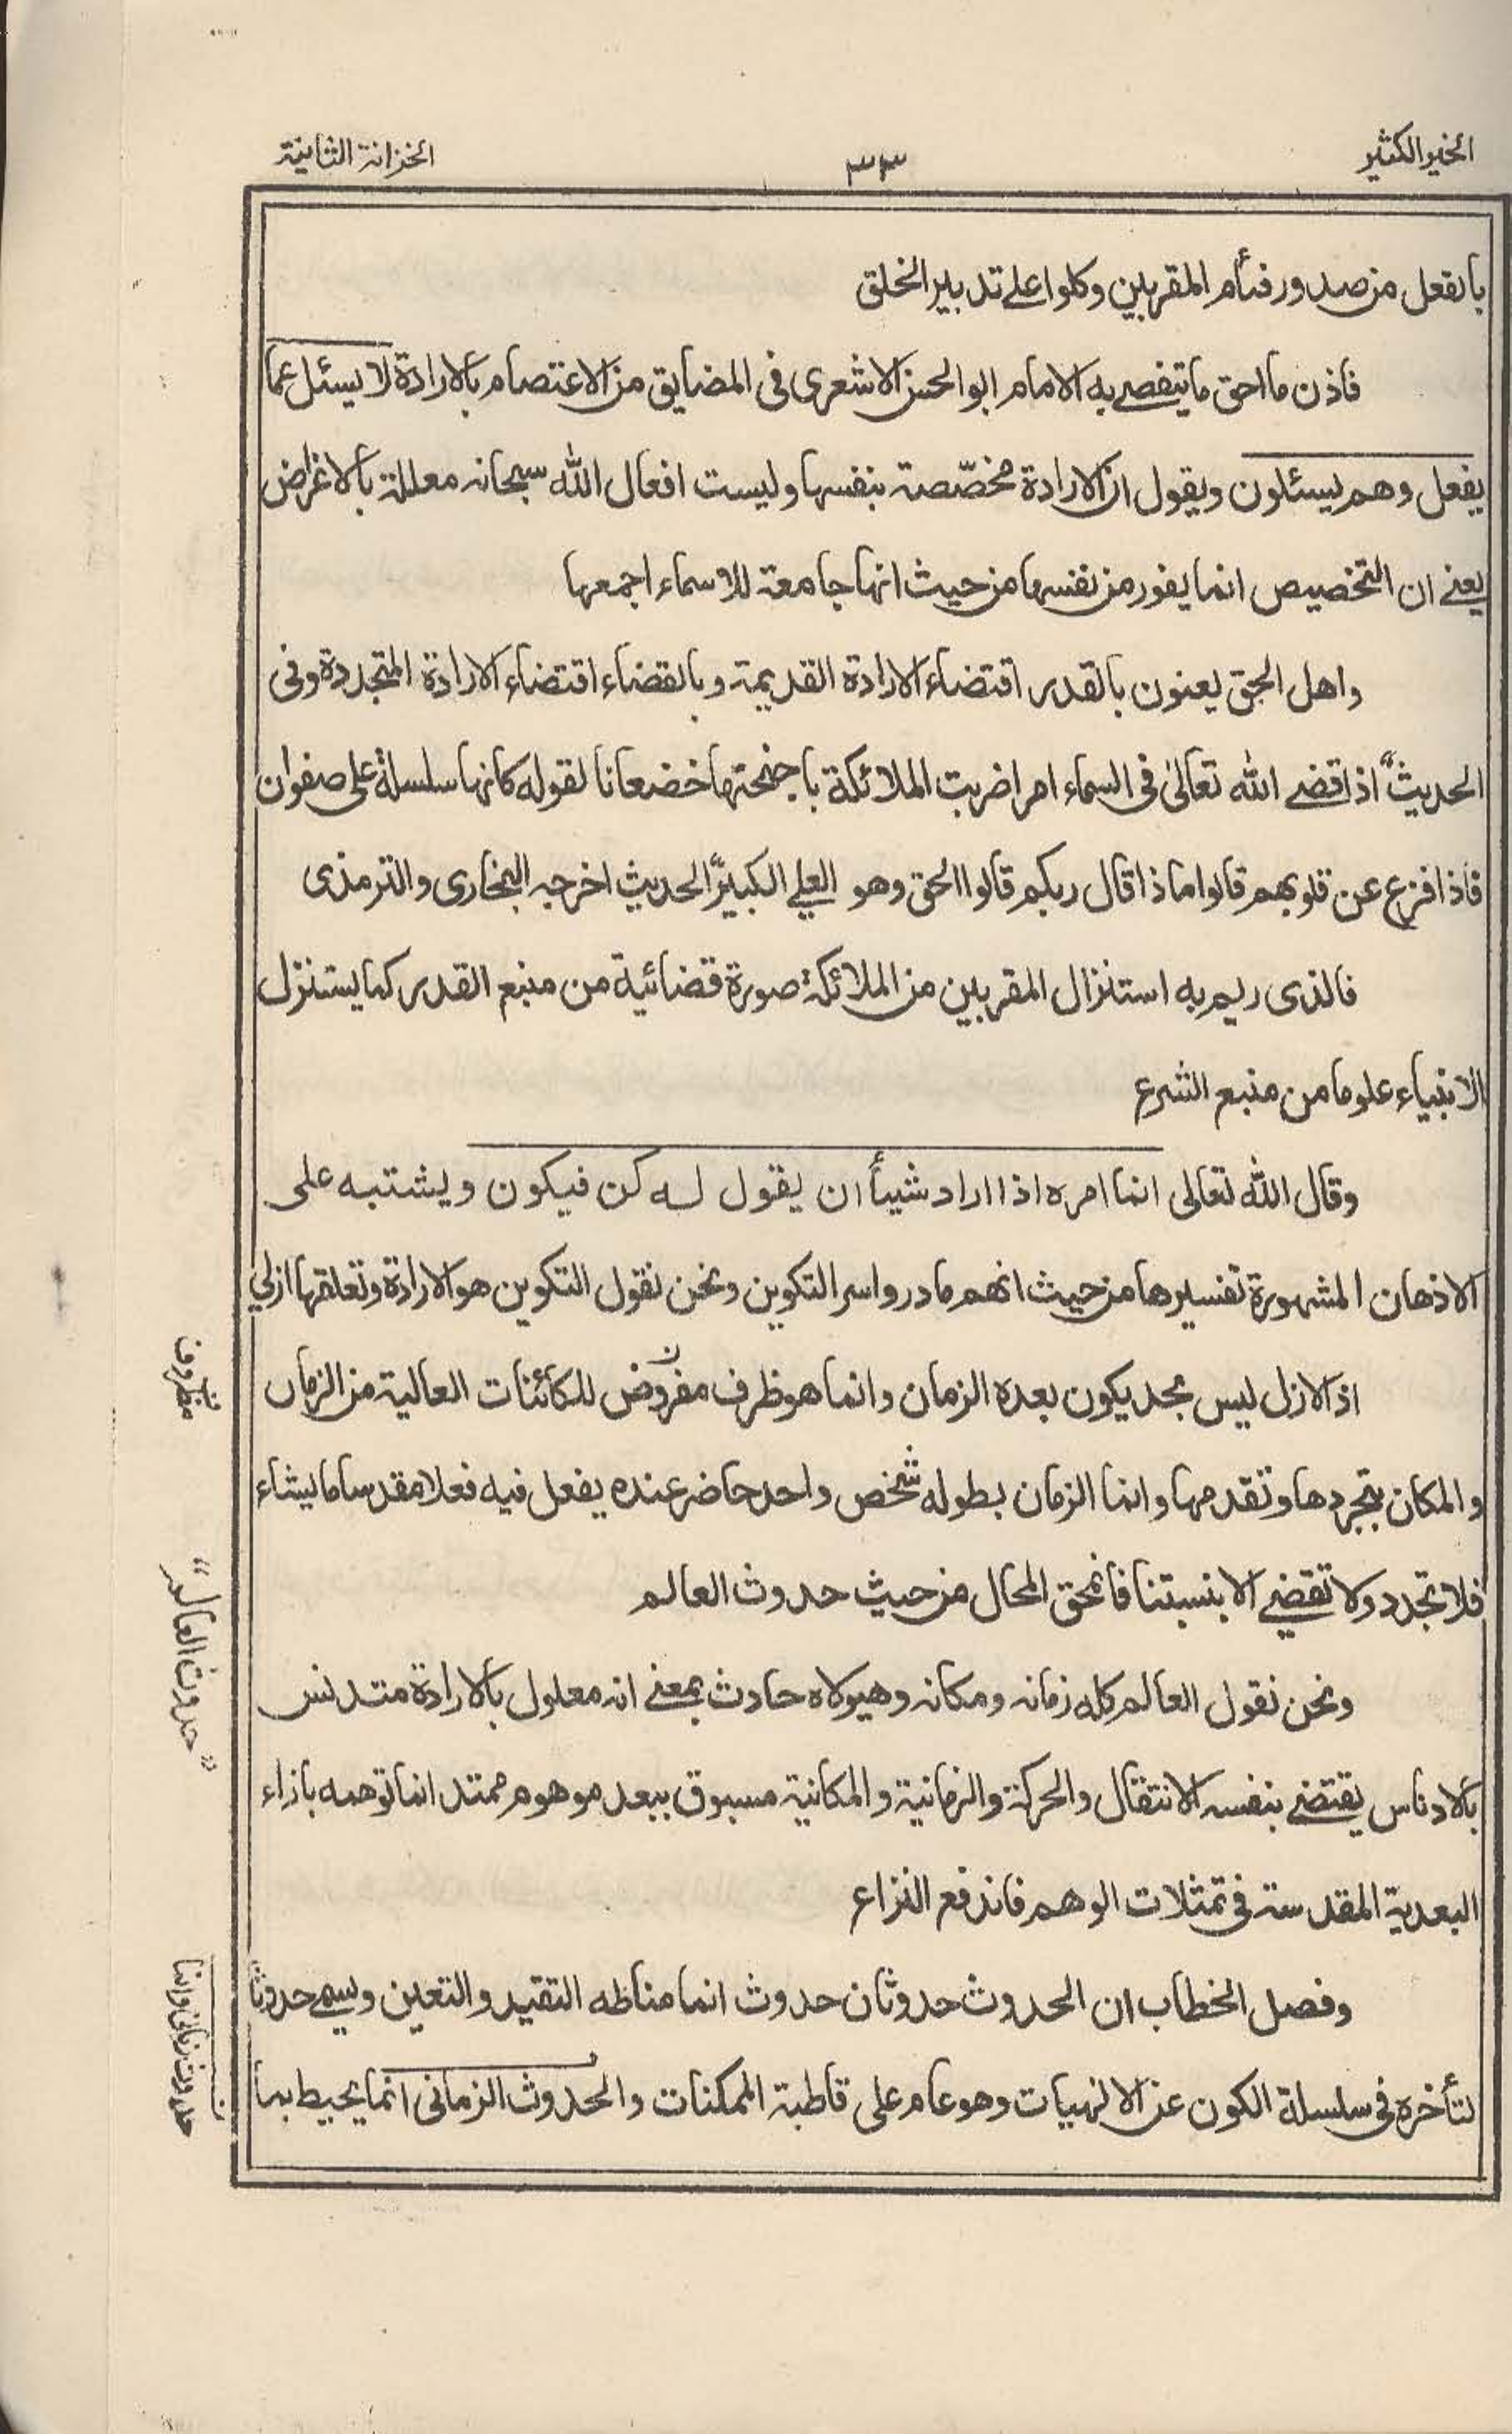 الخير الكثير
٣٣
الخزانة الثانية
بالفعل من صدور فئام المقربين وكلوا على تدبير الخلق
فاذن ما احق ما يتفصى به الامام ابو الحسن الاشعرى فى المضايق من الاعتصام بالارادة لا يسئل عما
يفعل وهم يسئلون ويقول ان الارادة مخصّصة بنفسها وليست افعال الله سبحانه معللة بالاغراض
يعنى ان التخصيص انما يفور من نفسها من حيث انها جامعة للاسماء اجمعها
واهل الحق يعنون بالقدر اقتضاء الارادة القديمة وبالقضاء اقتضاء الارادة المتجددة وفى
الحديث" اذا قضى الله تعالىٰ فى السماء امرا ضربت الملائكة باجنحتها خضعانا لقوله كانها سلسلة على صفوان
فاذا فزع عن قلوبهم قالوا ماذا قال ربكم قالوا الحق وهو العلى الكبير" الحديث اخرجه البخارى والترمذى
فالذى ريم به استنزال المقربين من الملائكة صورة قضائية من منبع القدر كما يستنزل
الانبياء علوما من منبع الشرع
وقال الله تعالى انما امره اذا اراد شيئاً ان يقول له كن فيكون ويشتبه على
الاذهان المشهورة تفسيرها من حيث انهم ما دروا سر التكوين ونحن نقول التكوين هو الارادة وتعلقها ازلى
اذ الازل ليس بحد يكون بعده الزمان وانما هو ظرف مفروض للكائنات العالية من الزمان
والمكان بتجردها وتقدمها وانما الزمان بطوله شخص واحد حاضر عنده يفعل فيه فعلا مقدسا ما يشاء
فلا تجدد ولا تقضى الا بنسبتنا فانمحق المحال من حيث حدوث العالم
ونحن نقول العالم كله زمانه ومكانه وهيولاه حادث بمعنى انه معلول بالارادة متدنس
بالادناس يقتضى بنفسه الانتقال والحركة والزمانية والمكانية مسبوق ببعد موهوم ممتد انما توهمه بازاء
البعدية المقدسة فى تمثلات الوهم فاندفع النزاع
وفصل الخطاب ان الحدوث حدوثان حدوث انما مناطه التقيد والتعين ويسمى حدوثا
لتأخره فى سلسلة الكون عن الالهيات وهو عام على قاطبة الممكنات والحدوث الزمانى انما يحيط بما
"حدوث العالم"